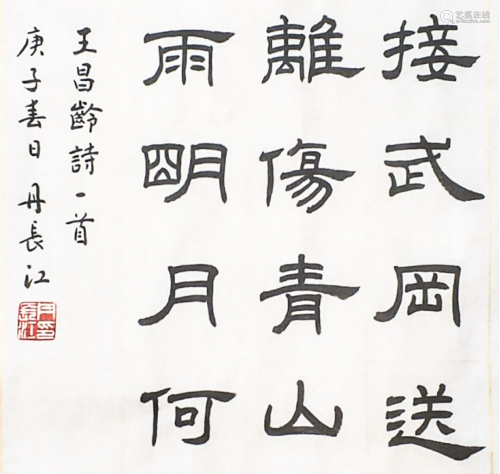 接武岡送
離傷青山
雨明月何
王昌齡詩一首
庚子春日丹長江